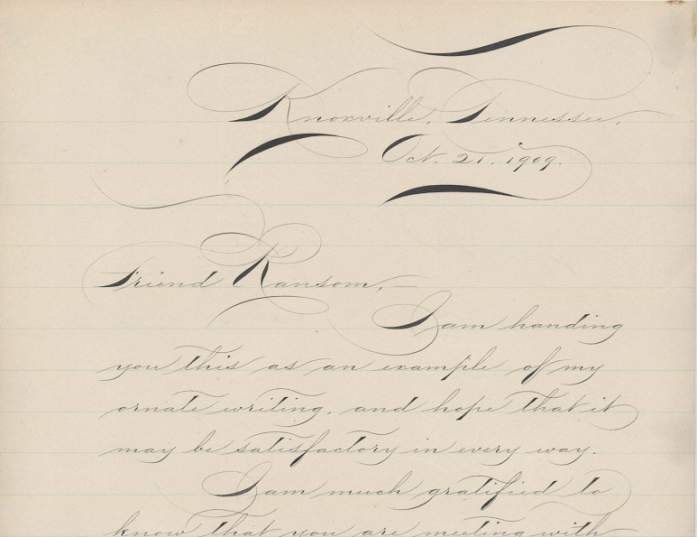 Knoxville, Tennessee.
Oct. 21, 1909.
Friend Ransom,
I am handing
you this as an example of my
ornate writing, and hope that it
may be satisfactory in every way.
I am much gratified to
know that you are meeting with